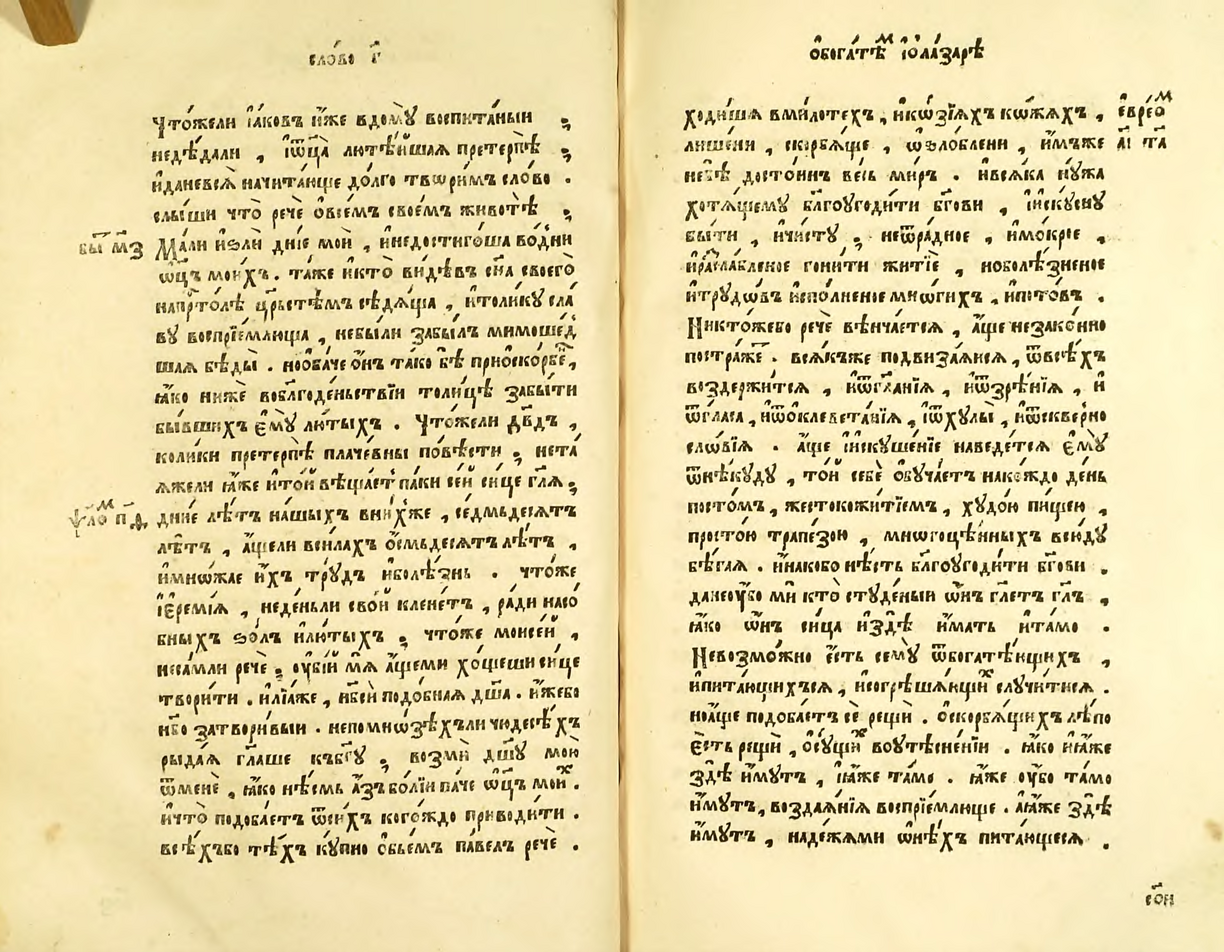 сло́во г҃
Что́жели і҆а́ковъ и҆́же вдомꙋ̀ воспита́ныи ;
недѣ́дали , і҆ѿц҃а̀ лютѣ́ишаѧ претерпѣ̀ ;
и҆даневсѧ̀ начита́юще до́лго твѡри́мъ сло́во .
слы́ши что̀ речѐ ѻ҆все́мъ свое́мъ животѣ̀ ;
бы҃ м҃з
Ма́ли и҆ѕли̑ дні́е мои̑ , и҆недостиго́ша во́дни
ѻ҆ц҃ъ мои́хъ . та́же и҆кто̀ ви́дѣвъ сн҃а своего̀
напрⷭ҇то́лѣ цр҃ьстѣмъ сѣдѧ́ща , и҆толи́кꙋ сла́
вꙋ воспрїе́млюща , небы́ли забы́лъ мимоше́д
шаѧ бѣды̀ . но҆ба́че ѻ҆́нъ та́ко бѣ̀ приско́рбенъ ,
ꙗ҆́ко нижѐ вобл҃годе́ньствїи толи́цѣ забы́ти
бы́вшихъ є҆мꙋ̀ лю́тыхъ . Что́жели дв҃дъ ,
коли́ки претерпѣ̀ плаче́вны по́вѣсти ; нета́
ꙗжели ꙗ҆́же и҆то́й вѣща́етъ па́ки се́й си́це гл҃ѧ ;
ѱало́м п҃ѳ
дни́е лѣ́тъ на́шыхъ вни́хже , се́дмьдесѧтъ
лѣ́тъ , а҆́щели вси́лахъ ѻ҆́смьдесѧтъ лѣ́тъ ,
и҆мно́жае и҆́хъ трꙋ́дъ и҆болѣ́знь . что́же
і҆еремі́ѧ , неде́ньли сво́й клене́тъ , ра́ди насо́
бныхъ ѕо́лъ и҆лю́тыхъ ; что́же моисе́й ,
неса́мли речѐ ; ᲂу҆бі́й мѧ̀ а҆́щеми хо́щеши си́це
твори́ти . и҆лїа́же , и҆бе́й подо́бнаѧ дш҃а̀ . и҆́жебо
нб҃о затвори́выи . непомнѡ́зѣхъли чюдесѣ́хъ
рыда́ѧ гл҃аше къбг҃ꙋ , возмѝ дш҃ꙋ мою̀
ѿменѐ , ꙗ҆́ко нѣ́смь а҆́зъ бо́лїи па́че ѻ҆ц҃ъ мои́х .
и҆что̀ подоба́етъ ѿси́хъ кого́ждо приводи́ти .
всѣ́хъбо тѣ́хъ кꙋ́пно ѻ҆бье́мъ па́велъ речѐ .
ѻ҆бога́тѣм і҆ѻла́зарѣ
ходи́шѧ вми́лотехъ , и҆ко́зїѧхъ ко́жѧхъ ,
є҆вре́ом
лише́ни , ско́рбѧще , ѡ҆ѕло́блени , и҆́мъже
а҃і т҃а
небѣ̀ досто́инъ ве́сь ми́ръ . и҆всѧ́ка нꙋ́жа
хотѧ́щемꙋ бл҃гоꙋгоди́ти бг҃ови , и҆скꙋ́снꙋ
бы́ти , и҆чи́стꙋ ; неѿра́дное , и҆мо́крое ,
и҆разсла́бленое гони́ти житїѐ , ноболѣ́зненое
и҆трꙋдѡ́въ и҆спо́лненое мнѡ́гихъ , и҆по́товъ .
Никто́жебо речѐ вѣнча́етсѧ , а҆́ще незако́нно
постра́жетъ . всѧ́къже подвиза́ѧисѧ , ѿвсѣ́хъ
воздержи́тсѧ , и҆ѿгл҃анїѧ , и҆ѿзрѣ́нїѧ , и҆
ѿгла́са , и҆ѿоклевета́нїѧ , і҆ѿхꙋлы̀ , и҆ѿскве́рно
сло́вїѧ . а҆́ще і҆искꙋше́нїе наведе́тсѧ є҆мꙋ̀
ѿнѣ́кꙋдꙋ , то́й себѐ ѻ҆бꙋча́етъ нако́ждо де́нь
посто́мъ , жестокожи́тїемъ , хꙋдо́ю пи́щею ,
просто́ю трапе́зою , мнѡгоцѣ́нныхъ всю́дꙋ
бѣ́гаѧ . и҆на́кобо нѣ́сть бл҃гоꙋгоди́ти бг҃ови .
данеᲂу҆́бо ми кто̀ стꙋде́ныи ѻ҆́нъ гл҃етъ гл҃ъ ,
ꙗ҆́ко ѻ҆́нъ си́ца и҆здѣ̀ и҆́мать и҆та́мо .
Невозмо́жно є҆́сть семꙋ̀ ѿбогатѣ́ющихъ ,
и҆пита́ющихъсѧ , и҆согрѣша́ющих слꙋчи́тисѧ .
ноа҆́ще подоба́етъ сѐ рещѝ . ѻ҆скорбѧ́щихъ лѣ́по
є҆́сть рещѝ , ѻ҆сꙋ́щих воꙋтѣсне́нїи . ꙗ҆́ко и҆ꙗ҆́же
здѣ̀ и҆́мꙋтъ , и҆ꙗ҆́же та́мо . ꙗ҆́же ᲂу҆́бо та́мо
и҆́мꙋтъ , воздаѧ́нїѧ воспрїе́млюще . а҆ꙗ҆́же здѣ̀
и҆́мꙋтъ , наде́жѧми ѻ҆нѣ́хъ пита́ющесѧ .
сѻ҆́н